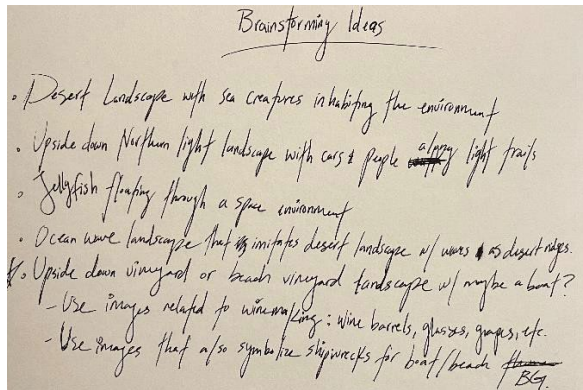 Brainstorming Ideas
• Desert Landscape with sea creatures inhabiting the environment
• Upside down Northern light landscape with cars & people along light trails
• Jellyfish floating through a space environment
• Ocean wave landscape that imitates desert landscape w/ waves as desert ridges.
• Upside down vineyard or beach vineyard landscape w/ maybe a boat?
- Use images related to winemaking: wine barrels, glasses, grapes, etc.
- Use images that also symbolize shipwrecks for boat/beach BG.